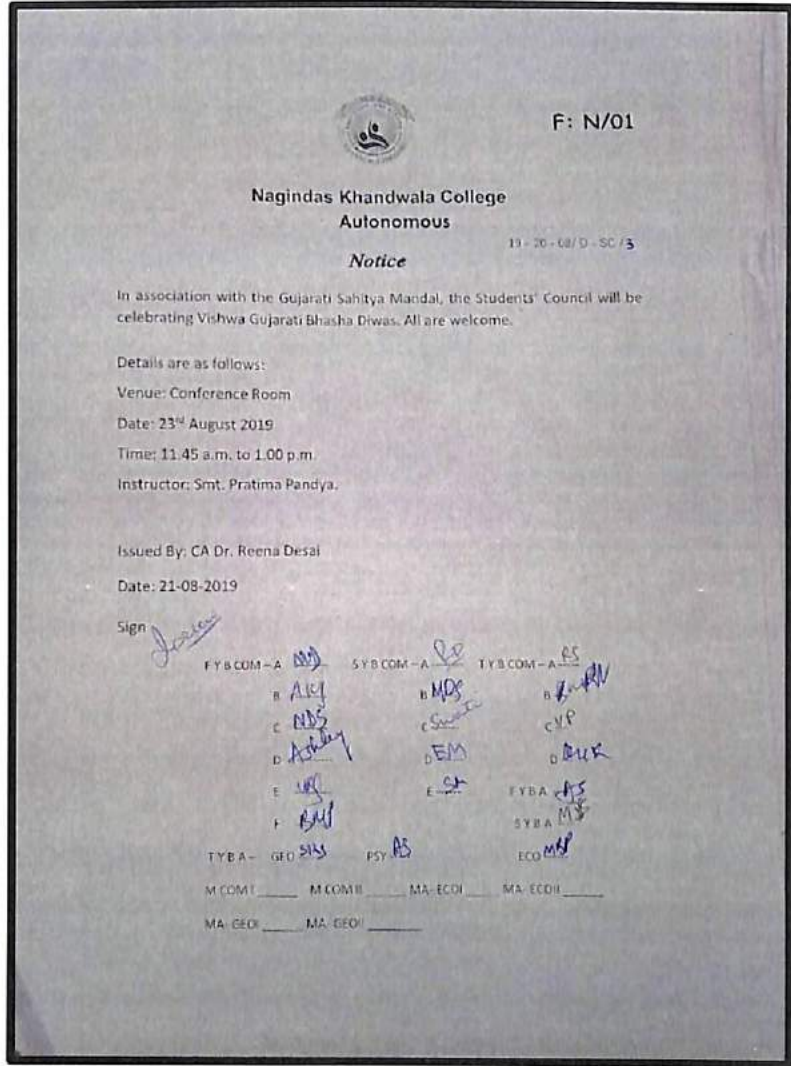 F: N/01
Nagindas Khandwala College
Autonomous
19 - 20 - 08/ D - SC / 3
Notice
In association with the Gujarati Sahitya Mandal, the Students' Council will be
celebrating Vishwa Gujarati Bhasha Diwas. All are welcome.
Details are as follows:
Venue: Conference Room
Date: 23rd August 2019
Time: 11.45 a.m. to 1.00 p.m.
Instructor: Smt. Pratima Pandya.
Issued By: CA Dr. Reena Desai
Date: 21-08-2019
Sign
F Y B COM – A S Y B COM – A T Y B COM – A RS
B B MDS B
C NDS C Swati C V.P
D Ashley D EM D
E E F Y B A AS
F S Y B A MS
T Y B A – GEO PSY AS ECO
M COM I ____ M COM II ____ MA- ECOI ____ MA- ECOII ____
MA- GEOI ____ MA- GEOII ____